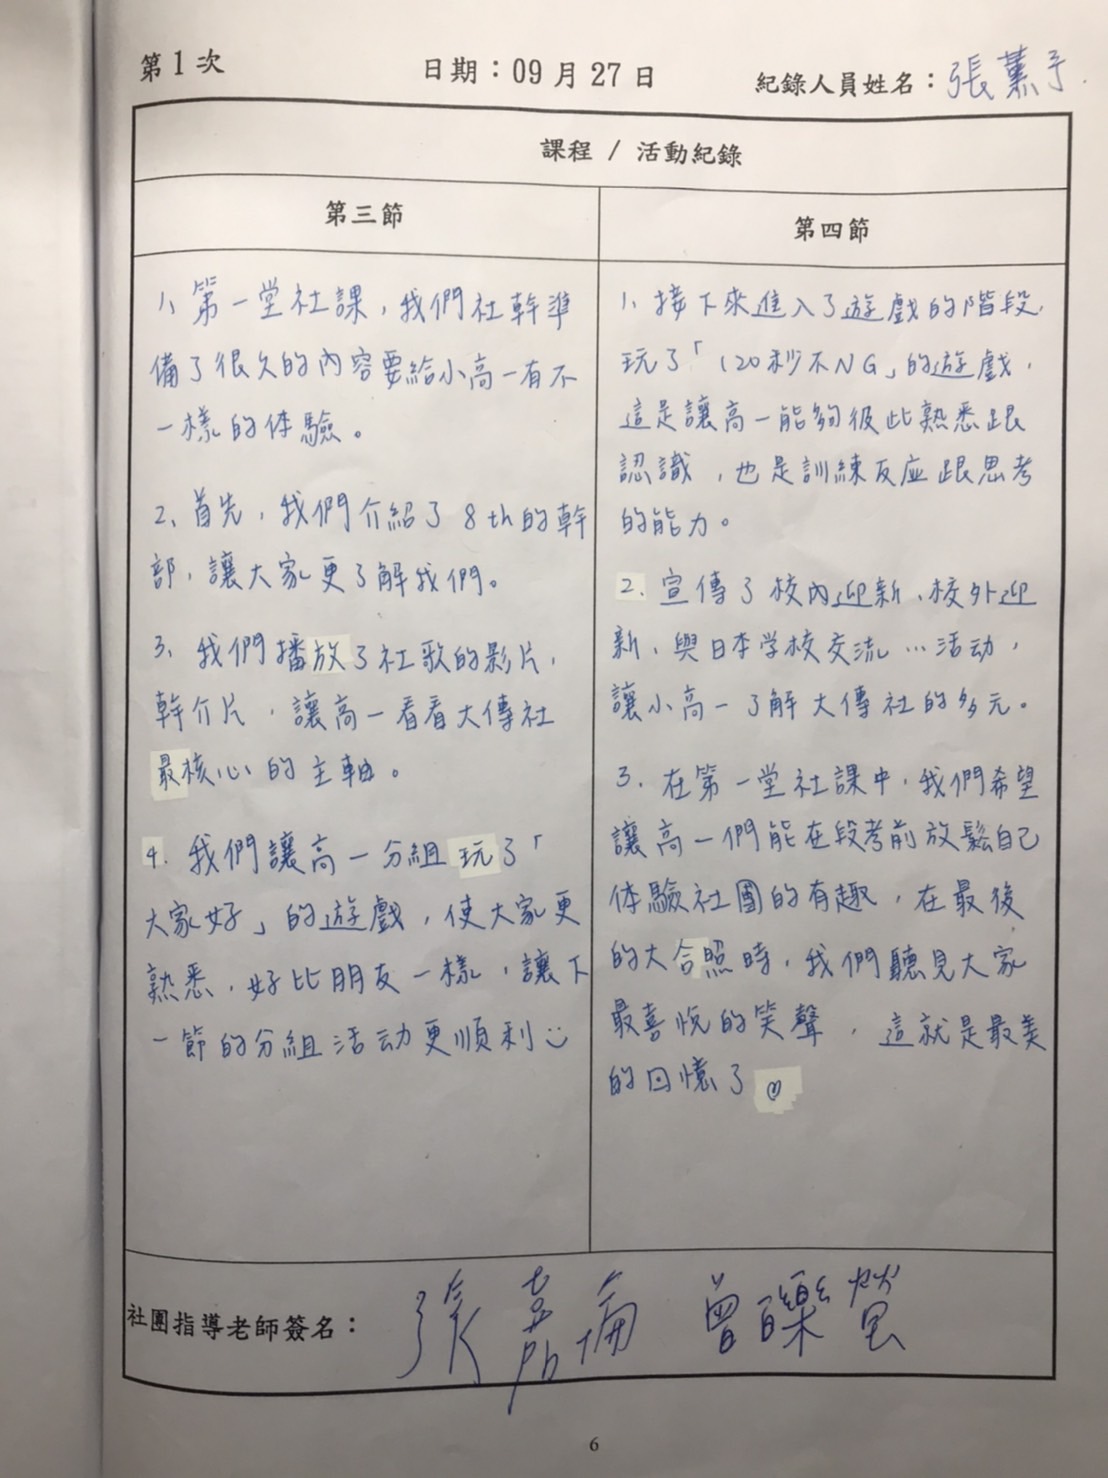 第1次
日期：09月27日
紀錄人員姓名：張薰予
課程 / 活動紀錄
第三節
1、第一堂社課，我們社幹準
備了很久的內容要給小高一有不
一樣的体驗。
2、首先，我們介紹了8th的幹
部，讓大家更了解我們。
3、我們播放了社歌的影片，
幹介片，讓高一看看大傳社
最核心的主軸。
4. 我們讓高一分組玩了「
大家好」的遊戲，使大家更
熟悉，好比朋友一樣，讓下
一節的分組活动更順利
第四節
1、接下來進入了遊戲的階段，
玩了「120秒不NG」的遊戲，
這是讓高一能夠彼此熟悉跟
認識，也是訓練反應跟思考
的能力。
2. 宣傳了校內迎新、校外迎
新、與日本学校交流…活动，
讓小高一了解大傳社的多元。
3. 在第一堂社課中，我們希望
讓高一們能在段考前放鬆自己
体驗社團的有趣，在最後
的大合照時，我們聽見大家
最喜悅的笑聲，這就是最美
的回憶了
社團指導老師簽名：
張嘉倫 曾礫螢
6